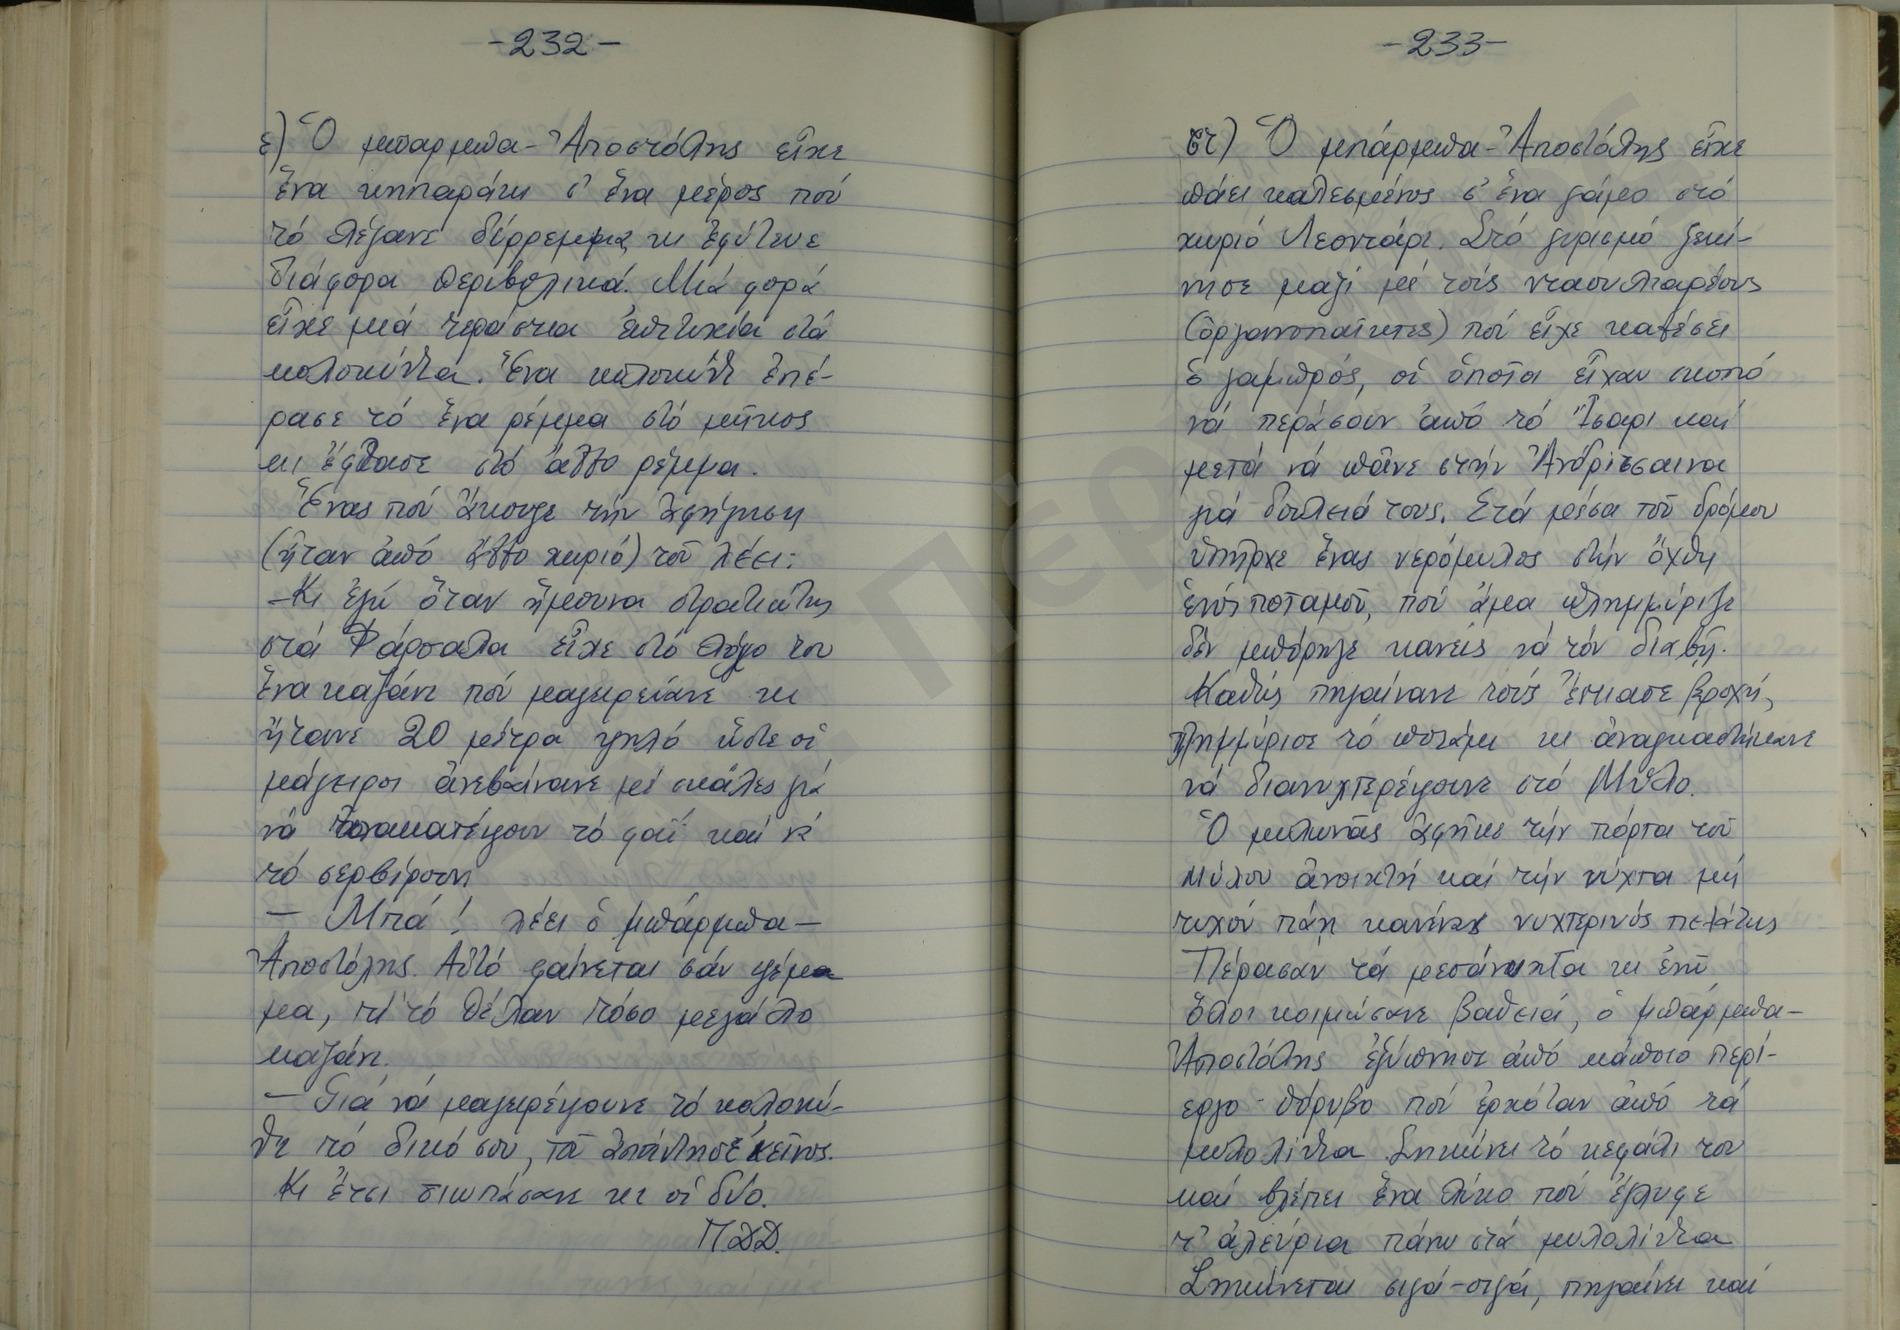 -232-
ε) Ὁ μπαρμπα-Ἀποστόλης εἶχε
ἕνα κηπαράκι σ' ἕνα μέρος πού
τό λέγανε κι ἐφύτευε
διάφορα περιβολικά. Μιά φορά
εἶχε μιά τεράστια ἐπιτυχία στά
κολοκύθια. Ἕνα κολοκύθι ἐπέ-
ρασε τό ἕνα ρέμμα στό μῆκος
κι ἔφθασε στό ἄλλο ρέμμα.
Ἕνας πού ἄκουγε τήν ἀφήγηση
(ἦταν ἀπό ἄλλο χωριό) τοῦ λέει:
-Κι ἐγώ ὅταν ἤμουνα στρατιώτης
στά Φάρσαλα εἶχε στό λόχο του
ἕνα καζάνι πού μαγειρεύανε κι
ἤτανε 20 μέτρα ψηλό ὥστε οἱ
μάγειροι ἀνεβαίνανε μέ σκάλες γιά
νά ἀνακατέψουν τό φαΐ καί ν'
τό σερβίρουν
- Μπά! λέει ὁ μπάρμπα-
Ἀποστόλης. Αὐτό φαίνεται σάν ψέμα
μα, τί τό θέλαν τόσο μεγάλο
καζάνι.
- Γιά νά μαγειρέψουνε τό κολοκύ-
θι τό δικό σου, τοῦ ἀπάντησε ἐκεῖνος.
Κι ἔτσι σιωπάσανε κι οἱ δύο.
Π.Δ.Δ.
-233-
στ) Ὁ μπάρμπα-Ἀποστόλης εἶχε
πάει καλεσμένος σ' ἕνα γάμο στό
χωριό Λεοντάρι. Στό γυρισμό ξεκί-
νησε μαζί μέ τούς νταουλιαρέους
(ὀργανοπαῖκτες) πού εἶχε καλέσει
ὁ γαμπρός, οἱ ὁποῖοι εἶχαν σκοπό
νά περάσουν ἀπό τό Ἴσαρι καί
μετά νά πᾶνε στήν Ἀνδρίτσαινα
γιά δουλειά τους. Στά μέσα τοῦ δρόμου
ὑπῆρχε ἕνας νερόμυλος στήν ὄχθη
ἑνός ποταμοῦ, πού ἅμα πλημμύριζε
δέν μπόρηγε κανείς νά τόν διαβῆ.
Καθώς πηγαίνανε τούς ἔπιασε βροχή,
πλημμύρισε τό ποτάμι κι ἀναγκαστήκανε
νά διανυκτερέψουνε στό Μύλο.
Ὁ μυλωνᾶς ἄφηκε τήν πόρτα τοῦ
μύλου ἀνοικτή καί τήν νύχτα μή
τυχόν πάη κανένας νυχτερινός πελάτης
Πέρασαν τά μεσάνυχτα κι ἐκεῖ
ὅλοι κοιμώσανε βαθειά, ὁ μπάρμπα-
Ἀποστόλης ἐξύπνησε ἀπό κάποιο περί-
εργο θόρυβο πού ἐρχόταν ἀπό τά
μυλολίθια. Σηκώνει τό κεφάλι του
καί βλέπει ἕνα λύκο πού ἔγλυφε
τ' ἀλεύρια πάνω στά μυλολίθια
Σηκώνεται σιγά-σιγά, πηγαίνει καί